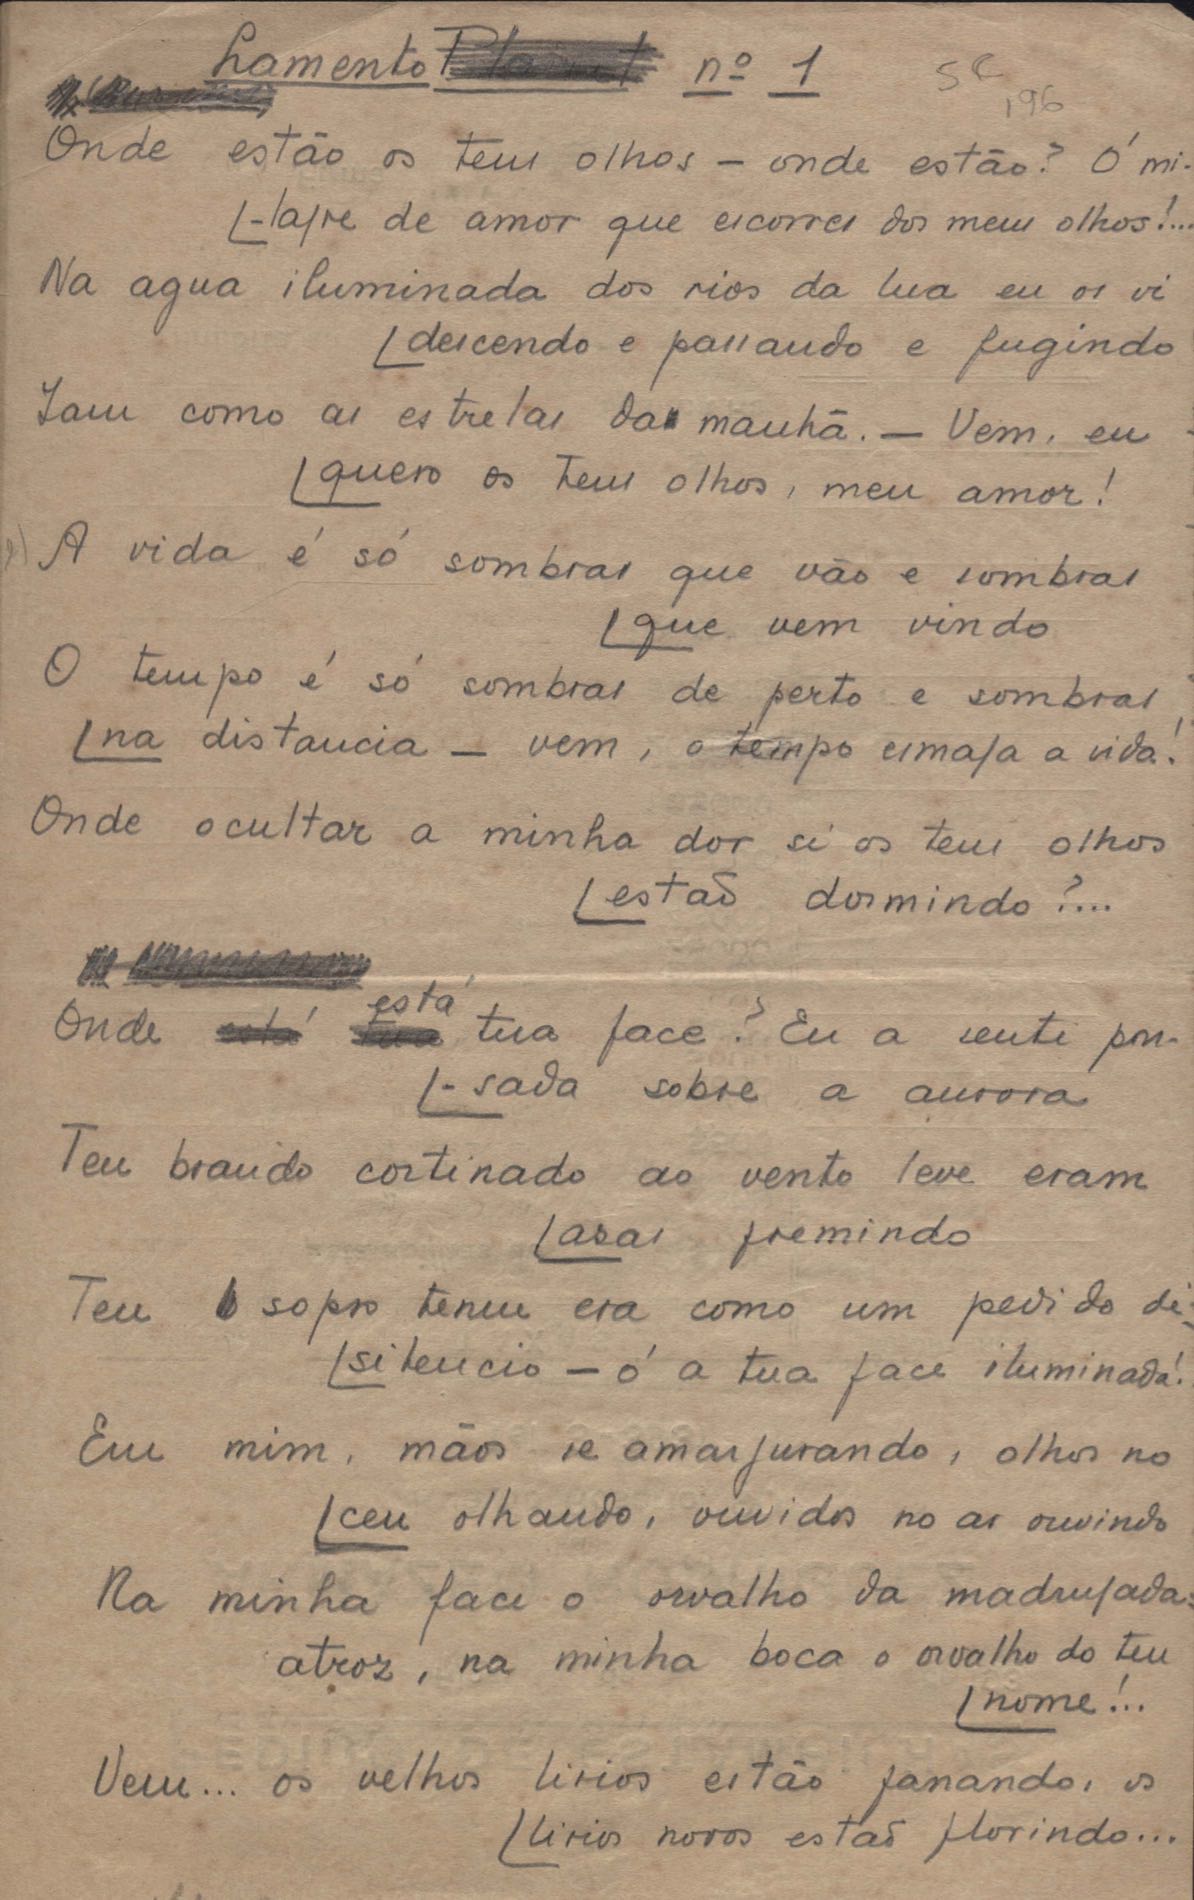 Lamento nº 1
5C
196
Onde estão os teus olhos – onde estão? Ó mi-
-lagre de amor que escorres dos meus olhos!...
Na agua iluminada dos rios da lua eu os vi
descendo e passando e fugindo
Iam como as estrelas da manhã. – Vem, eu
quero os teus olhos, meu amor!
A vida é só sombras que vão e sombras
que vem vindo
O tempo é só sombras de perto e sombras
na distancia – vem, o tempo esmaga a vida!
Onde ocultar a minha dor si os teus olhos
estaõ dormindo?...
está
Onde está tua tua face? Eu a senti pou-
-sada sobre a aurora
Teu brando cortinado ao vento leve eram
asas fremindo
Teu sopro tenue era como um pedido de
silencio – ó a tua face iluminada!
Em mim, mãos se amargurando, olhos no
ceu olhando, ouvidos no ar ouvindo
Na minha face o orvalho da madrugada
atroz, na minha boca o orvalho do teu
nome!..
Vem... os velhos lirios estão fanando, os
lirios novos estaõ florindo...